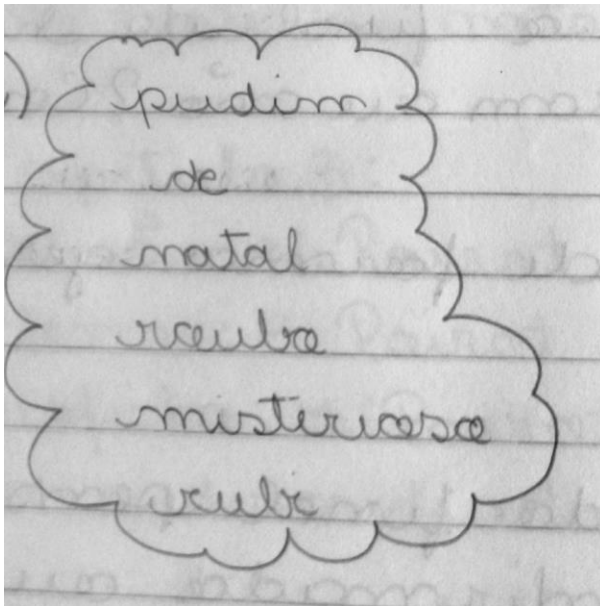 pudim
de
natal
roubo
misterioso
rubi